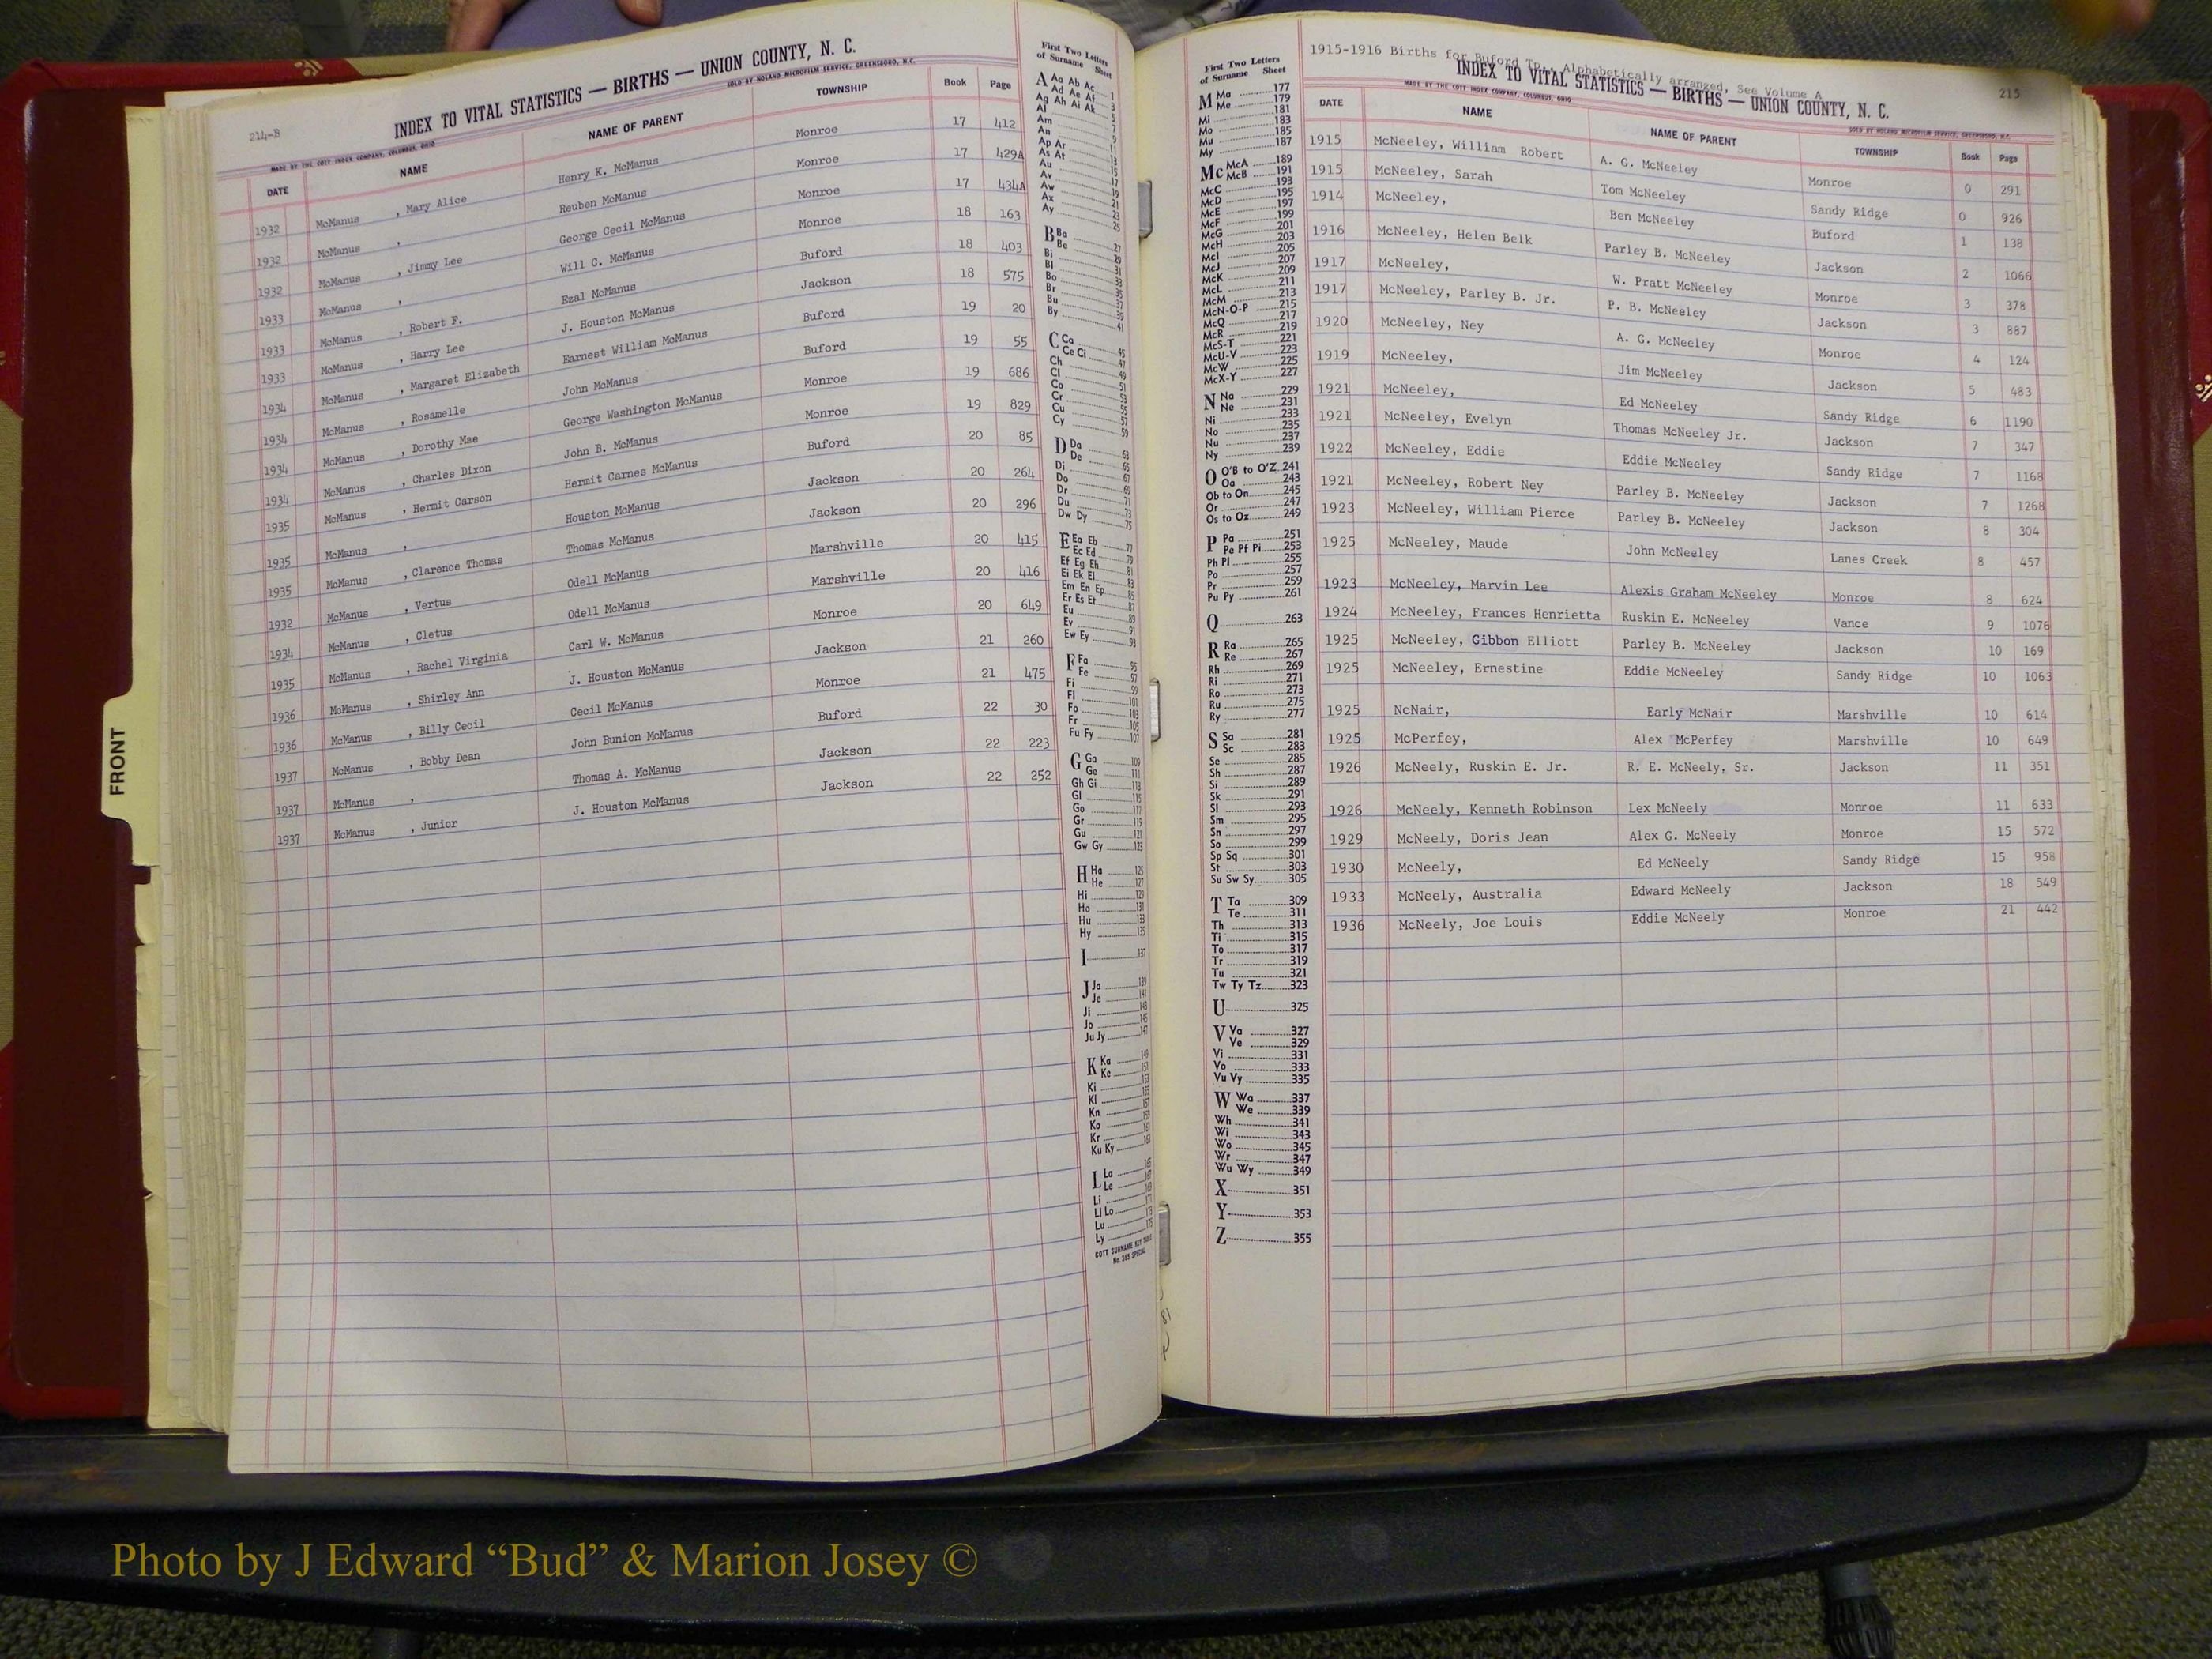 214-B
INDEX TO VITAL STATISTICS — BIRTHS — UNION COUNTY, N. C.
MADE BY THE COTT INDEX COMPANY, COLUMBUS, OHIO SOLD BY NOLAND MICROFILM SERVICE, GREENSBORO, N.C.
DATE NAME NAME OF PARENT TOWNSHIP Book Page
1932 McManus , Mary Alice Henry K. McManus Monroe 17 412
1932 McManus , Reuben McManus Monroe 17 429A
1932 McManus , Jimmy Lee George Cecil McManus Monroe 17 434A
1933 McManus , Will C. McManus Monroe 18 163
1933 McManus , Robert F. Ezal McManus Buford 18 403
1933 McManus , Harry Lee J. Houston McManus Jackson 18 575
1934 McManus , Margaret Elizabeth Earnest William McManus Buford 19 20
1934 McManus , Rosamelle John McManus Buford 19 55
1934 McManus , Dorothy Mae George Washington McManus Monroe 19 686
1934 McManus , Charles Dixon John B. McManus Monroe 19 829
1935 McManus , Hermit Carson Hermit Carnes McManus Buford 20 85
1935 McManus , Houston McManus Jackson 20 264
1935 McManus , Clarence Thomas Thomas McManus Jackson 20 296
1932 McManus , Vertus Odell McManus Marshville 20 415
1934 McManus , Cletus Odell McManus Marshville 20 416
1935 McManus , Rachel Virginia Carl W. McManus Monroe 20 649
1936 McManus , Shirley Ann J. Houston McManus Jackson 21 260
1936 McManus , Billy Cecil Cecil McManus Monroe 21 475
1937 McManus , Bobby Dean John Bunion McManus Buford 22 30
1937 McManus , Thomas A. McManus Jackson 22 223
1937 McManus , Junior J. Houston McManus Jackson 22 252
FRONT
First Two Letters
of Surname Sheet
A Aa Ab Ac 1
Ad Ae Af 3
Ag Ah Ai Ak 5
Al 7
Am 9
An 11
Ap Ar 13
As At 15
Au 17
Av 19
Aw 21
Ax 23
Ay 25
B Ba 27
Be 29
Bi 31
Bl 33
Bo 35
Br 37
Bu 39
By 41
C Ca 45
Ce Ci 47
Ch 49
Cl 51
Co 53
Cr 55
Cu 57
Cy 59
D Da 63
De 65
Di 67
Do 69
Dr 71
Du 73
Dw Dy 75
E Ea Eb 77
Ec Ed 79
Ef Eg Eh 81
Ei Ek El 83
Em En Ep 85
Er Es Et 87
Eu 89
Ev 91
Ew Ey 93
F Fa 95
Fe 97
Fi 99
Fl 101
Fo 103
Fr 105
Fu Fy 107
G Ga 109
Ge 111
Gh Gi 113
Gl 115
Go 117
Gr 119
Gu 121
Gw Gy 123
H Ha 125
He 127
Hi 129
Ho 131
Hu 133
Hy 135
I 137
J Ja 139
Je 141
Ji 143
Jo 145
Ju Jy 147
K Ka 149
Ke 151
Ki 153
Kl 155
Kn 157
Ko 159
Kr 161
Ku Ky 163
L La 165
Le
Li
Ll Lo 173
Lu 175
Ly
COTT SURNAME KEY TABLE
No. 355 SPECIAL
First Two Letters
of Surname Sheet
M Ma 177
Me 179
Mi 181
Mo 183
Mu 185
My 187
Mc McA 189
McB 191
McC 193
McD 195
McE 197
McF 199
McG 201
McH 203
McI 205
McJ 207
McK 209
McL 211
McM 213
McN-O-P 215
McQ 217
McR 219
McS-T 221
McU-V 223
McW 225
McX-Y 227
N Na 229
Ne 231
Ni 233
No 235
Nu 237
Ny 239
O O'B to O'Z 241
Oa 243
Ob to On 245
Or 247
Os to Oz 249
P Pa 251
Pe Pf Pi 253
Ph Pl 255
Po 257
Pr 259
Pu Py 261
Q 263
R Ra 265
Re 267
Rh 269
Ri 271
Ro 273
Ru 275
Ry 277
S Sa 281
Sc 283
Se 285
Sh 287
Si 289
Sk 291
Sl 293
Sm 295
Sn 297
So 299
Sp Sq 301
St 303
Su Sw Sy 305
T Ta 309
Te 311
Th 313
Ti 315
To 317
Tr 319
Tu 321
Tw Ty Tz 323
U 325
V Va 327
Ve 329
Vi 331
Vo 333
Vu Vy 335
W Wa 337
We 339
Wh 341
Wi 343
Wo 345
Wr 347
Wu Wy 349
X 351
Y 353
Z 355
1915-1916 Births for Buford Tp., Alphabetically arranged, See Volume A
215
INDEX TO VITAL STATISTICS — BIRTHS — UNION COUNTY, N. C.
MADE BY THE COTT INDEX COMPANY, COLUMBUS, OHIO SOLD BY NOLAND MICROFILM SERVICE, GREENSBORO, N.C.
DATE NAME NAME OF PARENT TOWNSHIP Book Page
1915 McNeeley, William Robert A. G. McNeeley Monroe 0 291
1915 McNeeley, Sarah Tom McNeeley Sandy Ridge 0 926
1914 McNeeley, Ben McNeeley Buford 1 138
1916 McNeeley, Helen Belk Parley B. McNeeley Jackson 2 1066
1917 McNeeley, W. Pratt McNeeley Monroe 3 378
1917 McNeeley, Parley B. Jr. P. B. McNeeley Jackson 3 887
1920 McNeeley, Ney A. G. McNeeley Monroe 4 124
1919 McNeeley, Jim McNeeley Jackson 5 483
1921 McNeeley, Ed McNeeley Sandy Ridge 6 1190
1921 McNeeley, Evelyn Thomas McNeeley Jr. Jackson 7 347
1922 McNeeley, Eddie Eddie McNeeley Sandy Ridge 7 1168
1921 McNeeley, Robert Ney Parley B. McNeeley Jackson 7 1268
1923 McNeeley, William Pierce Parley B. McNeeley Jackson 8 304
1925 McNeeley, Maude John McNeeley Lanes Creek 8 457
1923 McNeeley, Marvin Lee Alexis Graham McNeeley Monroe 8 624
1924 McNeeley, Frances Henrietta Ruskin E. McNeeley Vance 9 1076
1925 McNeeley, Gibbon Elliott Parley B. McNeeley Jackson 10 169
1925 McNeeley, Ernestine Eddie McNeeley Sandy Ridge 10 1063
1925 NcNair, Early McNair Marshville 10 614
1925 McPerfey, Alex McPerfey Marshville 10 649
1926 McNeely, Ruskin E. Jr. R. E. McNeely, Sr. Jackson 11 351
1926 McNeely, Kenneth Robinson Lex McNeely Monroe 11 633
1929 McNeely, Doris Jean Alex G. McNeely Monroe 15 572
1930 McNeely, Ed McNeely Sandy Ridge 15 958
1933 McNeely, Australia Edward McNeely Jackson 18 549
1936 McNeely, Joe Louis Eddie McNeely Monroe 21 442
Photo by J Edward “Bud” & Marion Josey ©